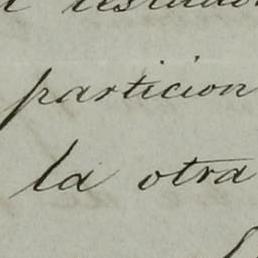 particion
la otra